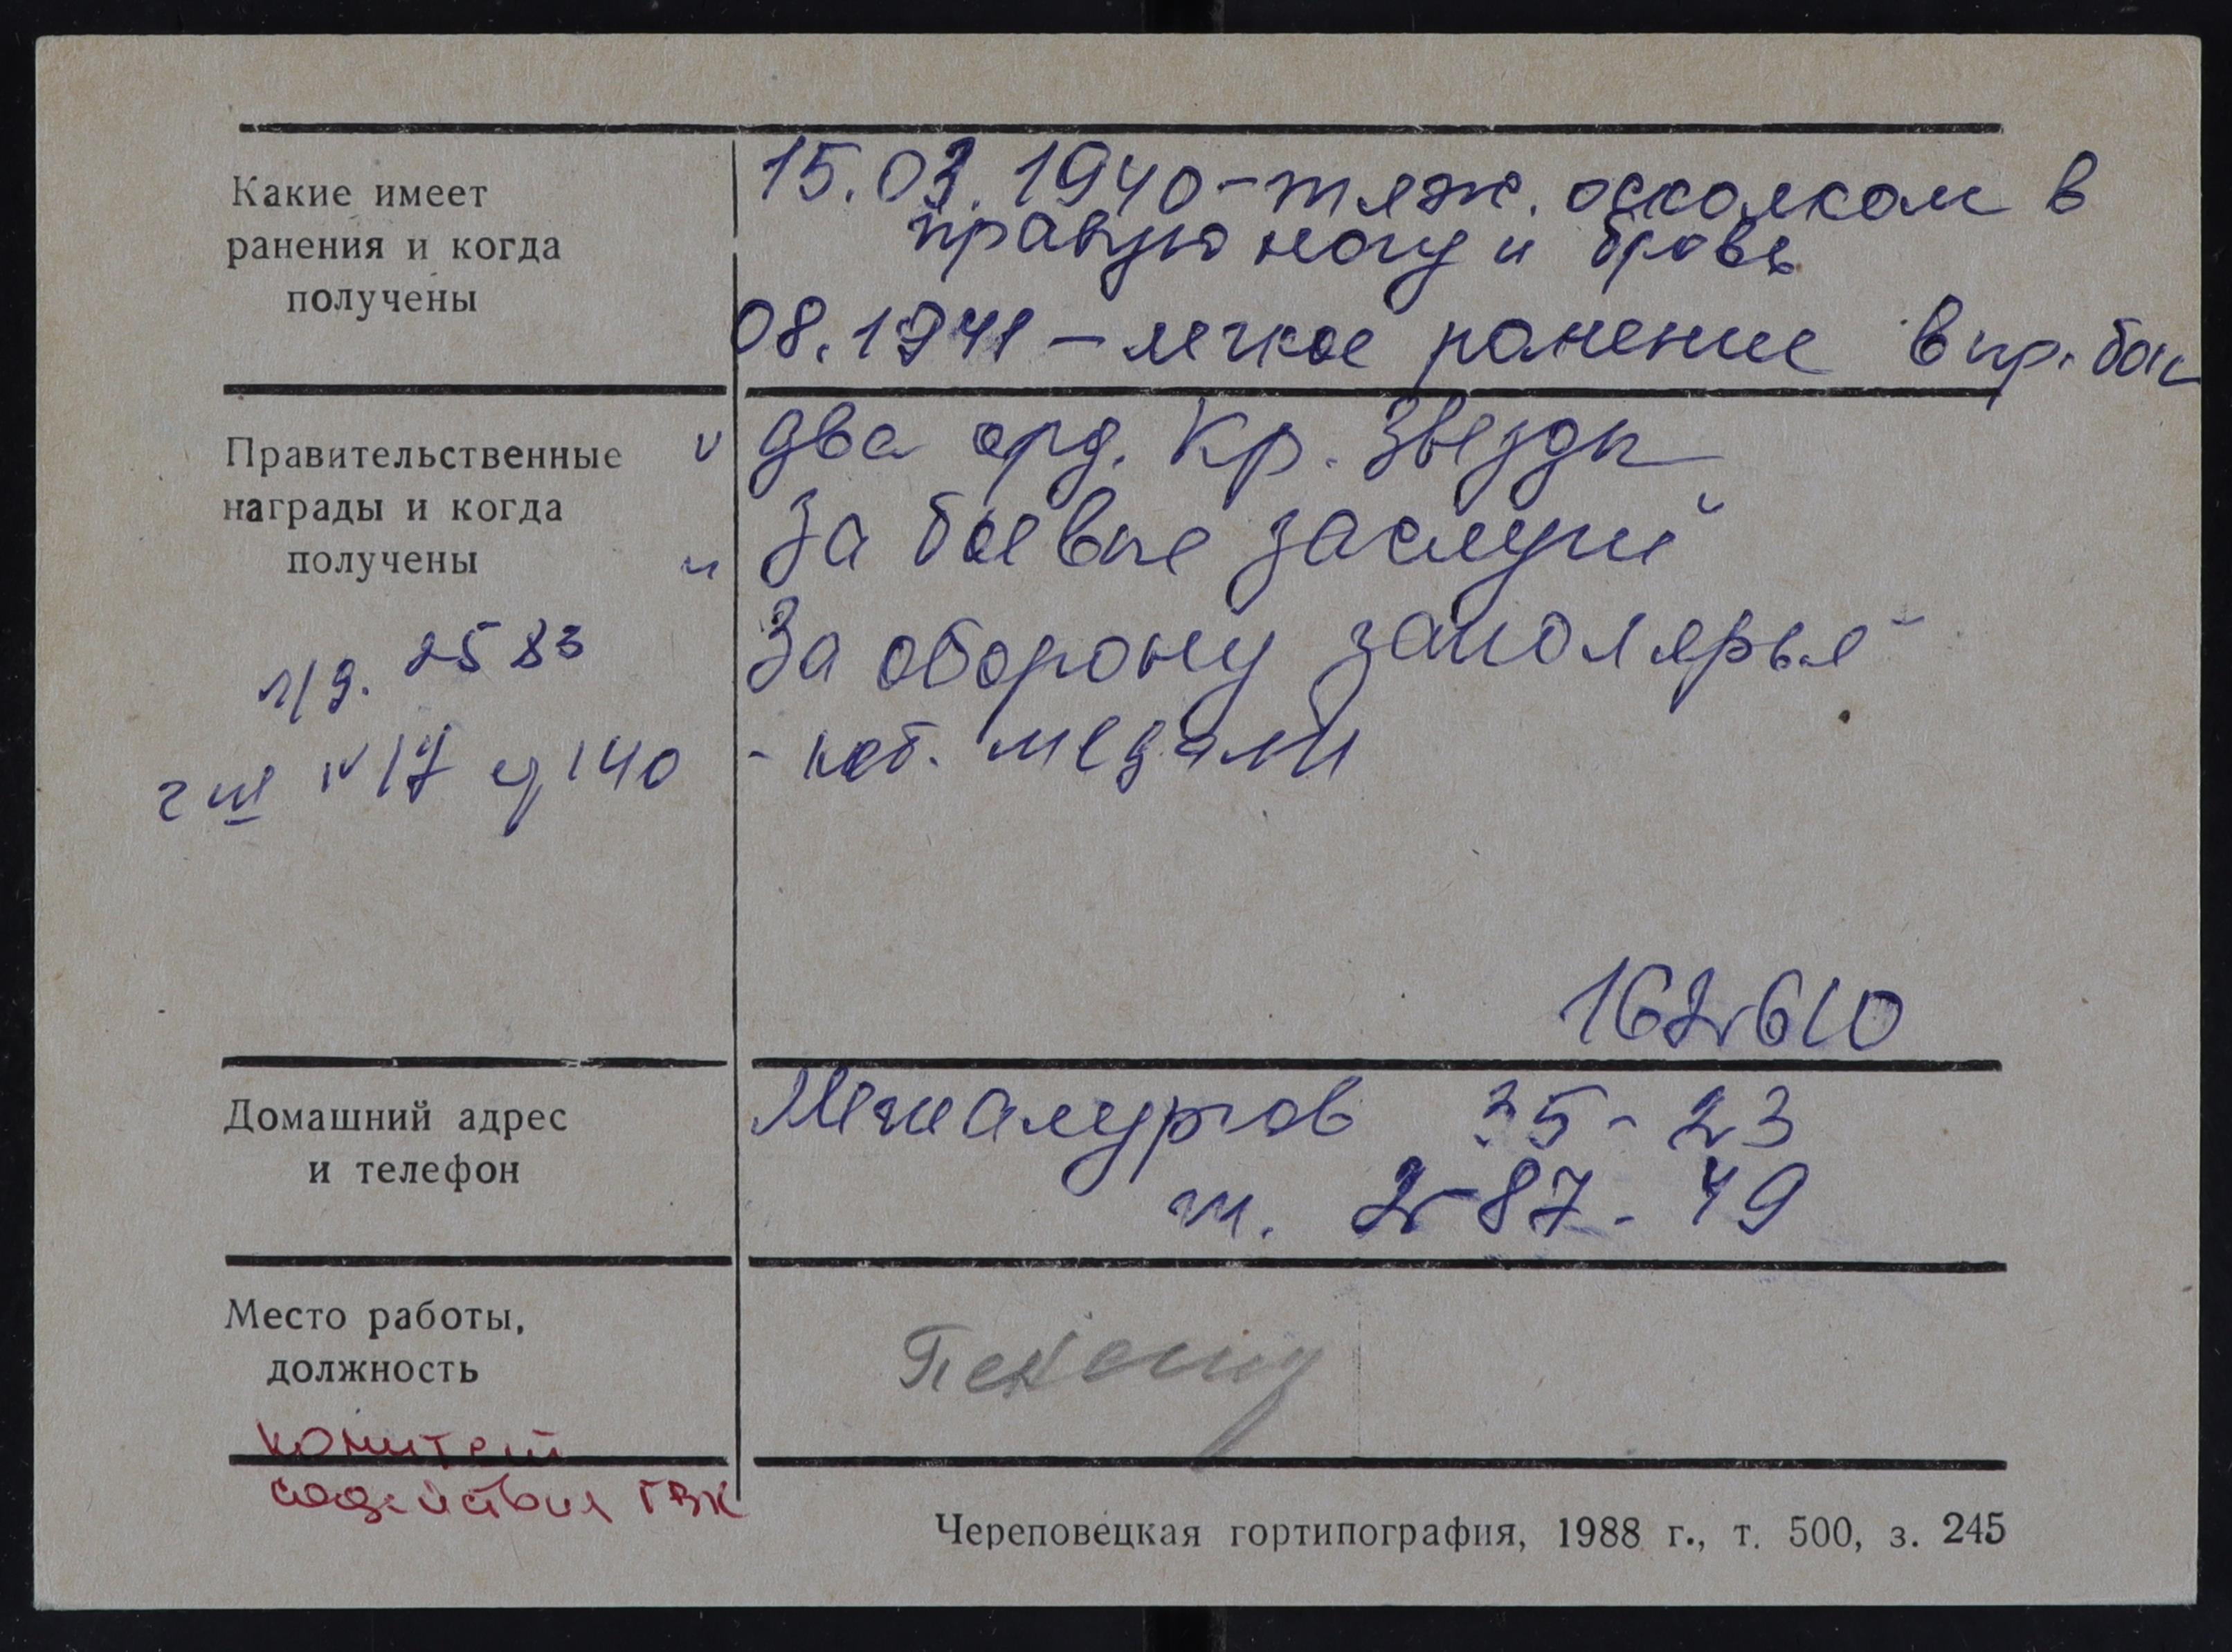 Какие имеет
ранения и когда
получены
15.03.1940 - тяж. осколком в
правую ногу и бровь
08.1941 - легкое ранение в пр. бок
Правительственные
награды и когда
получены
два орд. Кр. Звезды
За боевые заслуги
За оборону заполярья
- юб. медали
л/д. 2583
№17 140
162610
Домашний адрес
и телефон
Металлургов 35-23
т. 2-87-49
Место работы,
должность
комитет
содействия ГВК
Череповецкая гортипография, 1988 г., т. 500, з. 245